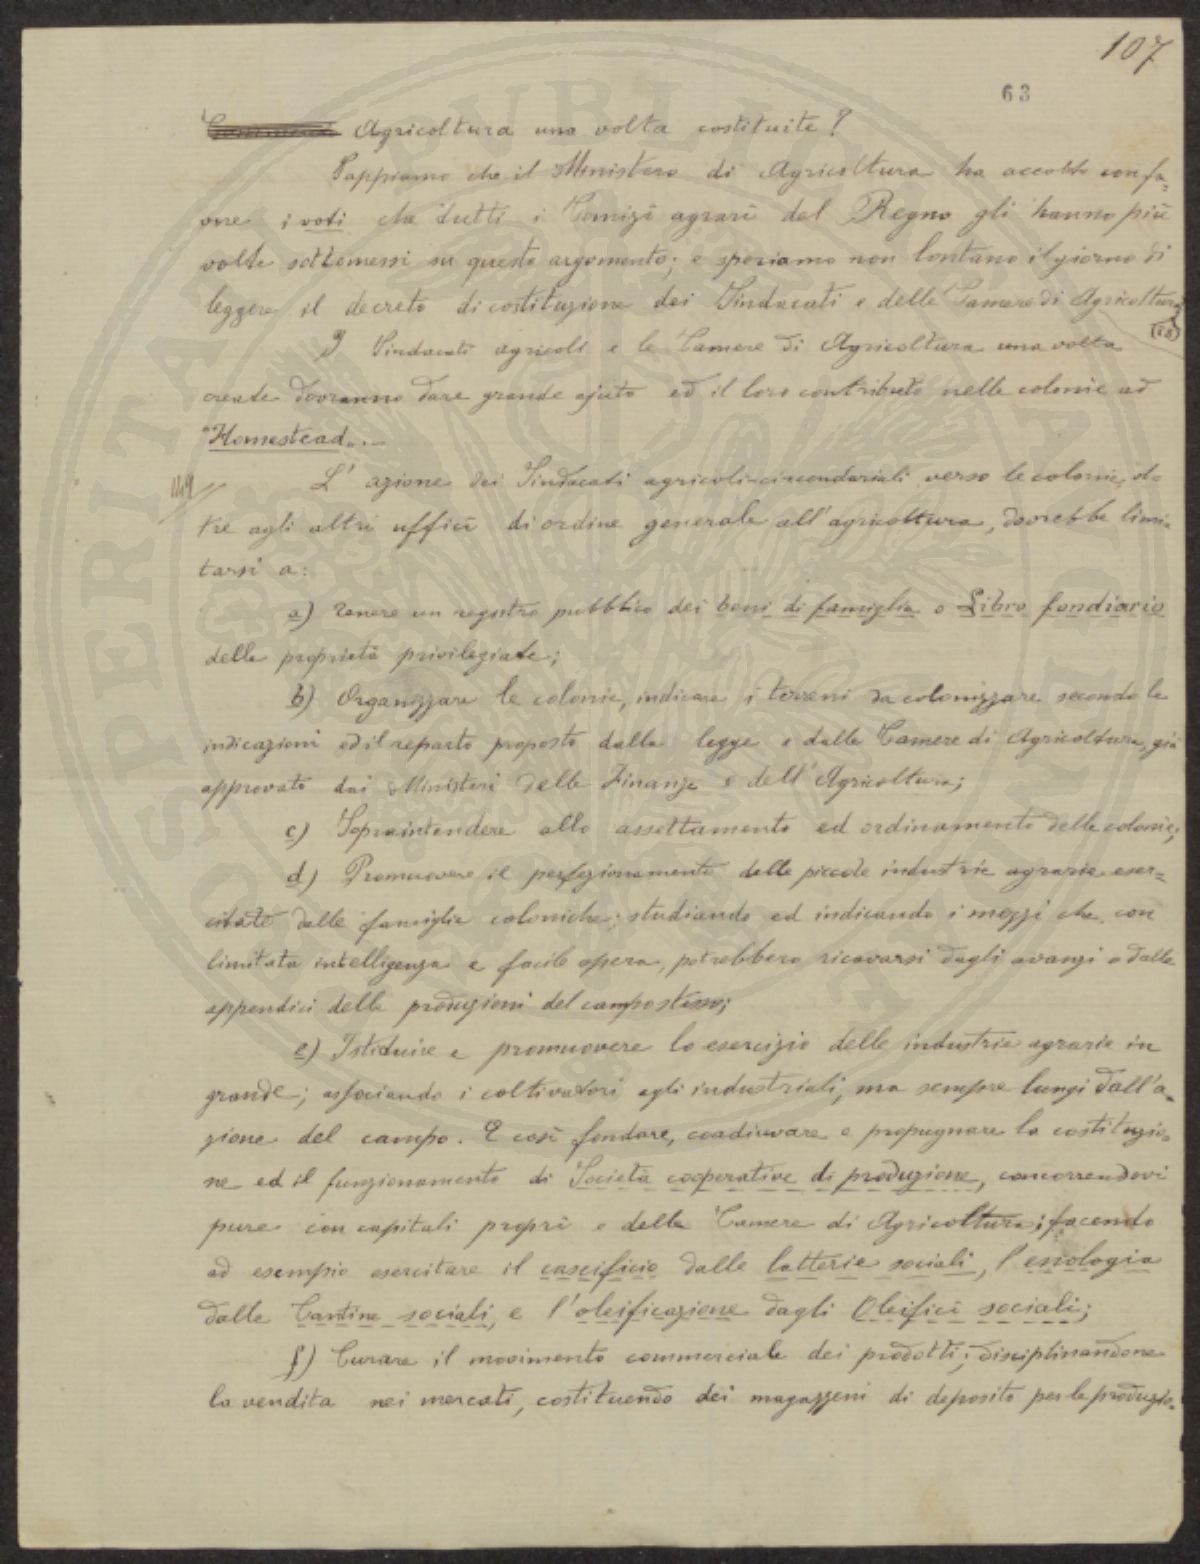 107
63
Agricoltura una volta costituite?
Sappiamo che il Ministero di Agricoltura ha accolto con fa=
vore i voti che tutti i Comizî agrarî del Regno gli hanno più
volte sottomessi su questo argomento; e speriamo non lontano il giorno di
leggere il decreto di costituzione dei Sindacati e delle Camere di Agricoltura
(58)
I Sindacati agricoli e le Camere di Agricoltura una volta
create dovranno dare grande ajuto ed il loro contributo nelle colonie ad
"Homestead„.—
149
L'azione dei Sindacati agricoli-circondariali verso le colonie, ol=
tre agli altri ufficî di ordine generale all'agricoltura, dovrebbe limi=
tarsi a:
a) Tenere un registro pubblico dei beni di famiglia o Libro fondiario
delle proprietà privilegiate;
b) Organizzare le colonie, indicare i terreni da colonizzare secondo le
indicazioni ed il reparto proposto dalla legge e dalle Camere di Agricoltura, già
approvato dai Ministeri delle Finanze e dell'Agricoltura;
c) Sopraintendere allo assettamento ed ordinamento delle colonie;
d) Promuovere il perfezionamento delle piccole industrie agrarie eser=
citate dalle famiglie coloniche; studiando ed indicando i mezzi che, con
limitata intelligenza e facile opera, potrebbero ricavarsi dagli avanzi o dalle
appendici delle produzioni del campo stesso;
e) Istituire e promuovere lo esercizio delle industrie agrarie in
grande; associando i coltivatori agli industriali, ma sempre lungi dall'a=
zione del campo. E così fondare, coadiuvare e propugnare la costituzio=
ne ed il funzionamento di Società cooperative di produzione, concorrendovi
pure con capitali proprî e delle Camere di Agricoltura; facendo
ad esempio esercitare il caseificio dalle latterie sociali, l'enologia
dalle Cantine sociali, e l'oleificazione dagli Oleifici sociali;
f) Curare il movimento commerciale dei prodotti; disciplinandone
la vendita nei mercati, costituendo dei magazzeni di deposito per le produzio=